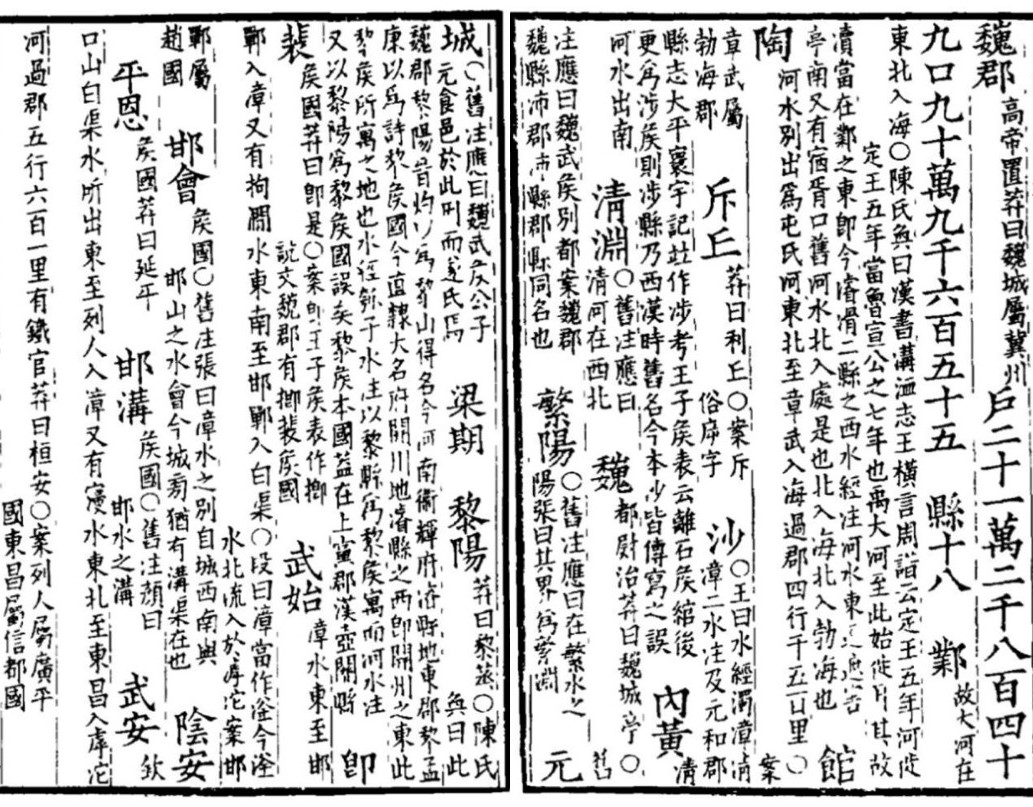 魏郡 高帝置莽曰魏城屬冀州 戶二十一萬二千八百四十
九口九十萬九千六百五十五 縣十八 鄴 故大河在
東北入海○陳氏奐曰漢書溝洫志王橫言周譜云定王五年河徙
定王五年當魯宣公之七年也禹大河至此始徙其故
瀆當在鄴之東卽今濬滑二縣之西水經注河水東
亭南又有宿胥口舊河水北入處是也北入海北入勃海也 館
陶 河水別出爲屯氏河東北至章武入海過郡四行千五百里○案
章武屬勃海郡 斥丘 莽曰利丘○案斥俗㡿字 沙 ○王曰水經濁漳清漳二水注及元和郡
縣志太平寰宇記竝作涉考王子矦表云離石矦綰後
更爲涉矦則涉縣乃西漢時舊名今本沙皆傳寫之誤 內黃 清
河水出南 清淵 ○舊注應曰清河在西北 魏 都尉治莽曰魏城亭○舊
注應曰魏武矦別都案魏郡魏縣沛郡沛縣郡縣同名也 繁陽 ○舊注應曰在繁水之陽張曰其界爲繁淵 元
城 ○舊注應曰魏武矦公子元食邑於此因而遂氏焉 梁期 黎陽 莽曰黎蒸○陳氏奐曰此
魏郡黎陽晉灼以爲黎山得名今河南衞輝府濬縣地東郡黎孟
康以爲詩黎矦國今直隸大名府開州地濬縣之西卽開州之東此
黎矦所寓之地也水經瓠子水注以黎縣爲黎矦寓而河水注
又以黎陽爲黎矦國誤矣黎矦本國蓋在上黨郡漢壺關縣 卽
裴 矦國莽曰卽是○案卽王子矦表作揤說文魏郡有揤裴矦國 武始 漳水東至邯
鄲入漳又有拘澗水東南至邯鄲入白渠○段曰漳當作滏今滏水北流入於滹沱案邯
鄲屬趙國 邯會 矦國○舊注張曰漳水之別自城西南與邯山之水會今城旁猶有溝渠在也 陰安
平恩 矦國莽曰延平 邯溝 矦國○舊注顏曰邯水之溝 武安 欽
口山白渠水所出東至列人入漳又有寖水東北至東昌入虖沱
河過郡五行六百一里有鐵官莽曰桓安○案列人屬廣平國東昌屬信都國